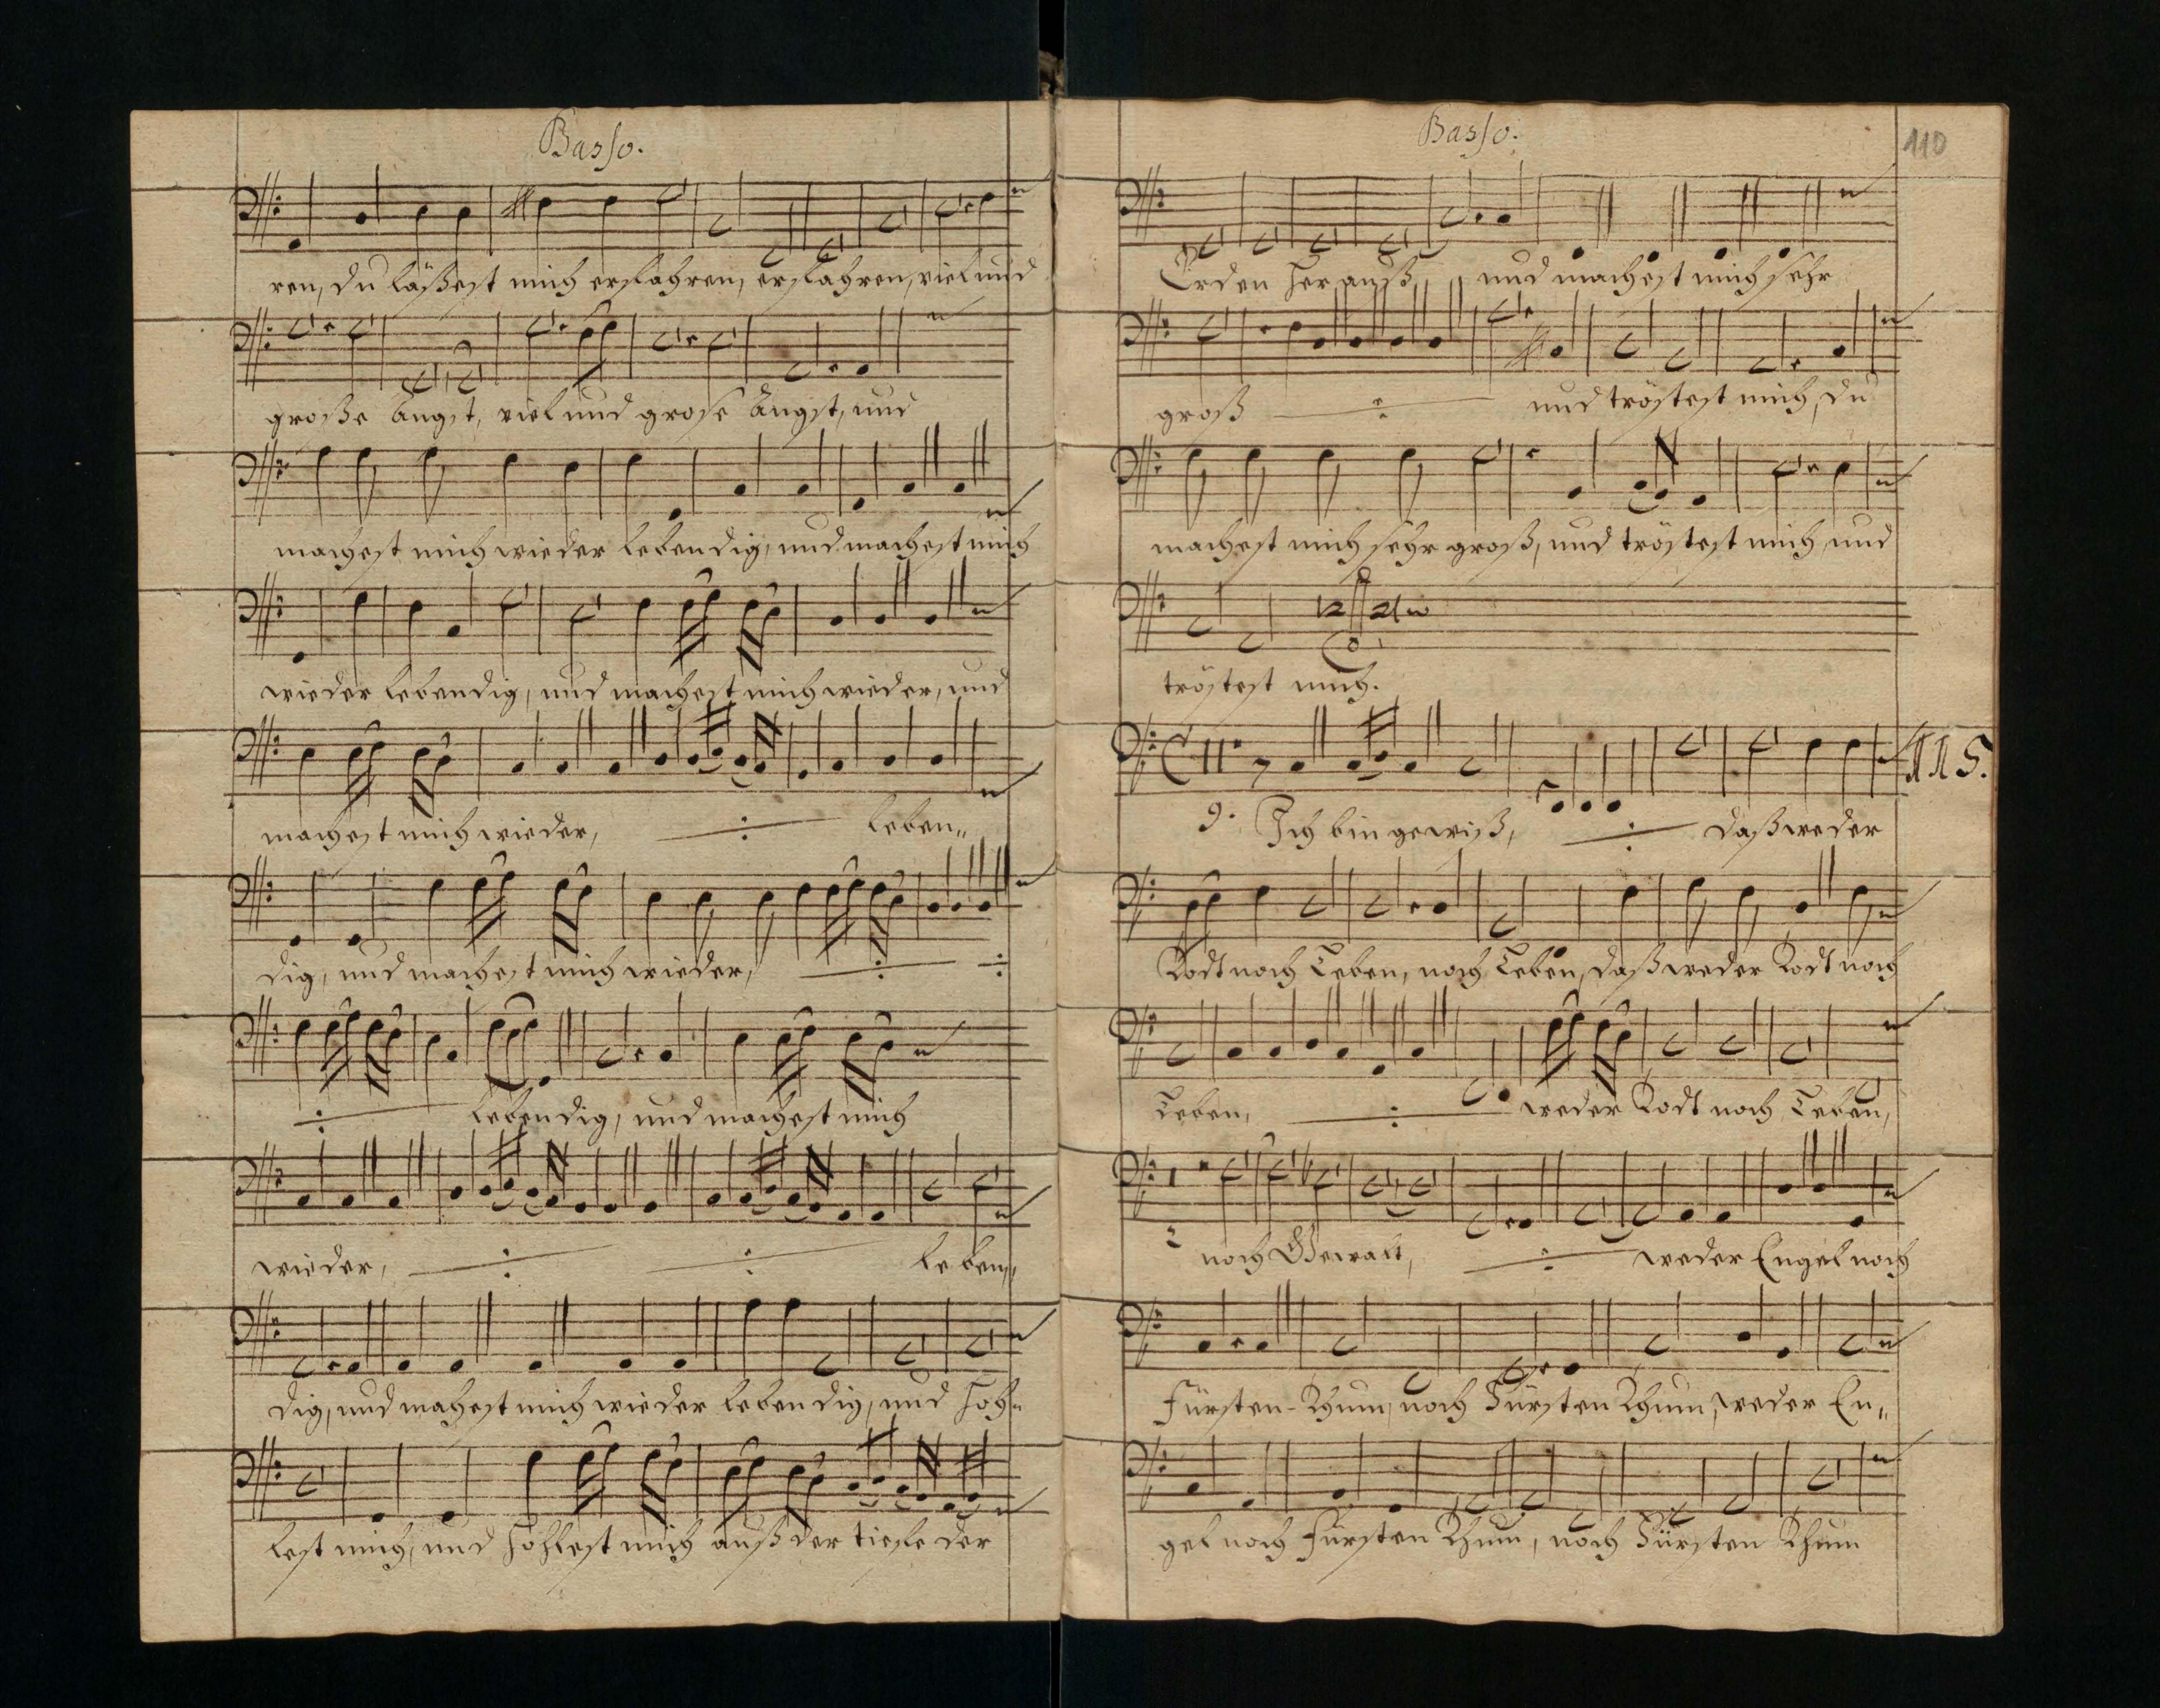 Basso.
ren, du läßest mich erfahren, erfahren, viel und
große Angst, viel und große Angst, und
machest mich wieder lebendig, und machest mich
wieder lebendig, und machest mich wieder, und
machest mich wieder, leben„
dig, und machest mich wieder,
lebendig, und machest mich
wieder, leben„
dig, und machest mich wieder lebendig, und hoh„
lest mich, und hohlest mich auß der tiefe der
Basso.
110
Erden herauß, und machest mich sehr
groß und tröstest mich, du
machest mich sehr groß, und tröstest mich und
tröstest mich.
115.
9. Ich bin gewiß, daß weder
Todt noch Leben, noch Leben, daß weder Todt noch
Leben, weder Todt noch Leben,
2 noch Gewalt, weder Engel noch
Fürsten-Thum, noch Fürsten Thum, weder En„
gel noch Fürsten Thum, noch Fürsten Thum